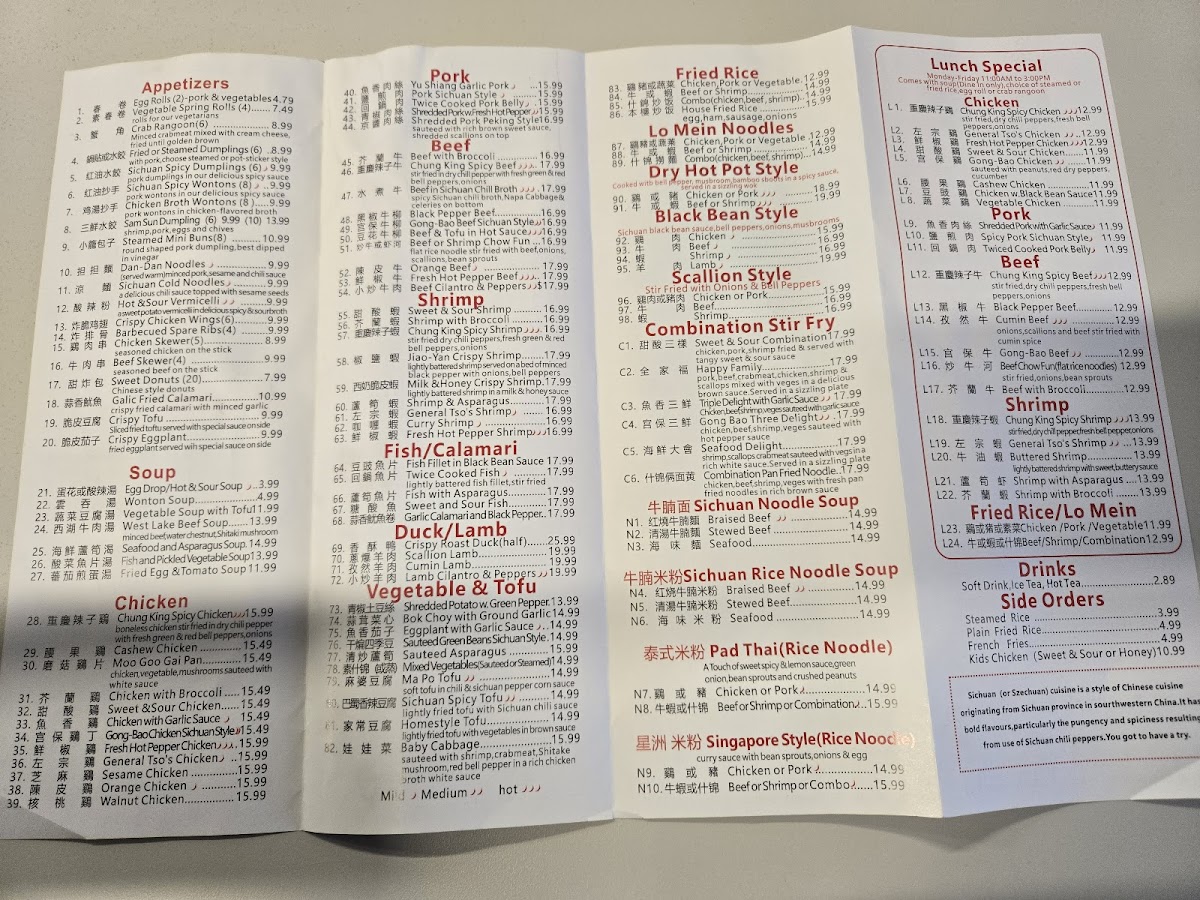 Appetizers
1. 春 卷 Egg Rolls (2)-pork & vegetables 4.79
2. 素 春 卷 Vegetable Spring Rolls (4).......7.49
rolls for our vegetarians
3. 蟹 角 Crab Rangoon(6) ................8.99
Minced crabmeat mixed with cream cheese,
fried until golden brown
4. 鍋貼或水餃 Fried or Steamed Dumplings (6) ..8.99
with pork,choose steamed or pot-sticker style
5. 紅油水餃 Sichuan Spicy Dumplings (6) 9.99
pork dumplings in our delicious spicy sauce
6. 紅油抄手 Sichuan Spicy Wontons (8) ..9.99
pork wontons in our delicious spicy sauce
7. 鸡湯抄手 Chicken Broth Wontons (8 )......9.99
pork wontons in chicken-flavored broth
8. 三鮮水餃 Sam Sun Dumpling (6) 9.99 (10) 13.99
shrimp,pork,eggs and chives
9. 小籠包子 Steamed Mini Buns(8) .......... 10.99
round shaped pork dumpling,best dipped
in vinegar
10. 担 担 麵 Dan-Dan Noodles ..............9.99
(served warm)minced pork,sesame and chili sauce
11. 涼 麵 Sichuan Cold Noodles..........9.99
a delicious chili sauce topped with sesame seeds
12. 酸 辣 粉 Hot &Sour Vermicelli ...........9.99
a sweet potato vermicelli in delicious spicy & sour broth
13. 炸脆鸡翅 Crispy Chicken Wings(6)..........9.99
14. 炸 排 骨 Barbecued Spare Ribs(4) ........9.99
15. 鷄 肉 串 Chicken Skewer(5)................8.99
seasoned chicken on the stick
16. 牛 肉 串 Beef Skewer(4) ....................9.99
seasoned beef on the stick
17. 甜 炸 包 Sweet Donuts (20)..................7.99
Chinese style donuts
18. 蒜香魷魚 Galic Fried Calamari..............10.99
crispy fried calamari with minced garlic
19. 脆皮豆腐 Crispy Tofu ........................9.99
Sliced fried tofu served with special sauce on side
20. 脆皮茄子 Crispy Eggplant....................9.99
fried eggplant served wih special sauce on side
Soup
21. 蛋花或酸辣湯 Egg Drop/Hot & Sour Soup ..3.99
22. 雲 吞 湯 Wonton Soup..................4.99
23. 蔬菜豆腐湯 Vegetable Soup with Tofu11.99
24. 西湖牛肉湯 West Lake Beef Soup.......13.99
minced beef,water chestnut,Shitaki mushroom
25. 海鮮蘆筍湯 Seafood and Asparagus Soup. 14.99
26. 酸菜魚片湯 Fish and Pickled Vegetable Soup13.99
27. 蕃茄煎蛋湯 Fried Egg &Tomato Soup 11.99
Chicken
28. 重慶辣子鷄 Chung King Spicy Chicken 15.99
boneless chicken stir fried in dry chili pepper
with fresh green & red bell peppers,onions
29. 腰 果 鷄 Cashew Chicken ............... 15.49
30. 磨菇鷄片 Moo Goo Gai Pan..............15.49
chicken,vegetable,mushrooms sauteed with
white sauce
31. 芥 蘭 鷄 Chicken with Broccoli .....15.49
32. 甜 酸 鷄 Sweet &Sour Chicken......15.49
33. 魚 香 鷄 Chicken with Garlic Sauce 15.49
34. 宫保鷄丁 Gong-Bao Chicken Sichuan Style 15.49
35. 鮮 椒 鷄 Fresh Hot Pepper Chicken. 15.49
36. 左 宗 鷄 General Tso's Chicken ..15.99
37. 芝 麻 鷄 Sesame Chicken ............15.99
38. 陳 皮 鷄 Orange Chicken ............15.99
39. 核 桃 鷄 Walnut Chicken...............15.99
Pork
40. 魚香肉絲 Yu Shiang Garlic Pork ......15.99
41. 鹽 煎 肉 Pork Sichuan Style .........15.99
42. 回 鍋 肉 Twice Cooked Pork Belly .15.99
43. 青椒肉絲 Shredded Pork w.Fresh Hot Pepper 15.99
44. 京醬肉絲 Shredded Pork Peking Style16.99
sauteed with rich brown sweet sauce,
shredded scallions on top
Beef
45. 芥 蘭 牛 Beef with Broccoli ........... 16.99
46. 重慶辣子牛 Chung King Spicy Beef ...17.99
stir fried in dry chili pepper with fresh green & red
bell peppers,onions
47. 水 煮 牛 Beef in Sichuan Chili Broth ...17.99
spicy Sichuan chili broth,Napa Cabbage &
celeries on bottom
48. 黑椒牛柳 Black Pepper Beef.............16.99
49. 宫保牛柳 Gong-Bao Beef Sichuan Style 16.99
50. 豆花牛柳 Beef & Tofu in Hot Sauce ...16.99
51. 炒牛或虾河 Beef or Shrimp Chow Fun ...16.99
flat rice noodle stir fried with beef,onions,
scallions,bean sprouts
52. 陳 皮 牛 Orange Beef .................. 17.99
53. 鮮 椒 牛 Fresh Hot Pepper Beef ...17.99
54. 小炒牛肉 Beef Cilantro & Peppers $17.99
Shrimp
55. 甜 酸 蝦 Sweet & Sour Shrimp ......... 16.99
56. 芥 蘭 蝦 Shrimp with Broccoli .........16.99
57. 重慶辣子蝦 Chung King Spicy Shrimp ....16.99
stir fried dry chili peppers,fresh green & red
bell peppers,onions
58. 椒 鹽 蝦 Jiao-Yan Crispy Shrimp.......17.99
lightly battered shrimp served on a bed of minced
black pepper with onions,bell peppers
59. 西奶脆皮蝦 Milk &Honey Crispy Shrimp.17.99
lightly battered shrimp in a milk & honey sauce
60. 蘆 筍 蝦 Shrimp & Asparagus..........17.99
61. 左 宗 蝦 General Tso's Shrimp ........16.99
62. 咖 喱 蝦 Curry Shrimp ................ 16.99
63. 鮮 椒 蝦 Fresh Hot Pepper Shrimp 16.99
Fish/Calamari
64. 豆豉魚片 Fish Fillet in Black Bean Sauce 17.99
65. 回鍋魚片 Twice Cooked Fish ............17.99
lightly battered fish fillet,stir fried
66. 蘆筍魚片 Fish with Asparagus...........17.99
67. 糖 酸 魚 Sweet and Sour Fish.........17.99
68. 蒜香魷魚卷 Garlic Calamari and Black Pepper..17.99
Duck/Lamb
69. 香 酥 鴨 Crispy Roast Duck(half)......25.99
70. 蔥爆羊肉 Scallion Lamb.................. 19.99
71. 孜然羊肉 Cumin Lamb................... 19.99
72. 小炒羊肉 Lamb Cilantro & Peppers 19.99
Vegetable & Tofu
73. 青椒土豆絲 Shredded Potato w. Green Pepper. 13.99
74. 蒜茸菜心 Bok Choy with Ground Garlic14.99
75. 魚香茄子 Eggplant with Garlic Sauce ..14.99
76. 干煸四季豆 Sauteed Green Beans Sichuan Style .14.99
77. 清炒蘆筍 Sauteed Asparagus ............15.99
78. 素什錦 (或蒸) Mixed Vegetables(Sauteed or Steamed)14.99
79. 麻婆豆腐 Ma Po Tofu ..................14.99
soft tofu in chili & sichuan pepper corn sauce
80. 巴蜀香辣豆腐 Sichuan Spicy Tofu ............14.99
lightly fried tofu with Sichuan chili sauce
81. 家常豆腐 Homestyle Tofu.................14.99
lightly fried tofu with vegetables in brown sauce
82. 娃 娃 菜 Baby Cabbage...................15.99
sauteed with shrimp,crabmeat,Shitake
mushroom,red bell pepper in a rich chicken
broth white sauce
Mild Medium hot
Fried Rice
83. 鷄豬或蔬菜 Chicken,Pork or Vegetable.12.99
84. 牛 或 蝦 Beef or Shrimp............14.99
85. 什錦炒饭 Combo(chicken,beef,shrimp)..14.99
86. 本樓炒饭 House Fried Rice .........14.99
egg,ham,sausage,onions
Lo Mein Noodles
87. 鷄豬或蔬菜 Chicken,Pork or Vegetable .12.99
88. 牛 或 蝦 Beef or Shrimp............14.99
89. 什 锦 撈 麵 Combo(chicken,beef,shrimp)...14.99
Dry Hot Pot Style
Cooked with bell pepper, mushroom,bamboo shoots in a spicy sauce,
served in a sizzling wok
90. 鷄 或 豬 Chicken or Pork ............18.99
91. 牛 或 蝦 Beef or Shrimp ............19.99
Black Bean Style
Sichuan black bean sauce,bell peppers,onions,mushrooms
92. 鷄 肉 Chicken .....................15.99
93. 牛 肉 Beef ........................16.99
94. 蝦 Shrimp ........................16.99
95. 羊 肉 Lamb ........................19.99
Scallion Style
Stir Fried with Onions & Bell Peppers
96. 鷄肉或豬肉 Chicken or Pork................15.99
97. 牛 肉 Beef ........................16.99
98. 蝦 Shrimp........................16.99
Combination Stir Fry
C1. 甜 酸 三 様 Sweet & Sour Combination17.99
chicken,pork,shrimp fried & served with
tangy sweet & sour sauce
C2. 全 家 福 Happy Family...................17.99
pork,beef,crabmeat,chicken,shrimp &
scallops mixed with veges in a delicious
brown sauce.Served in a sizzling plate
C3. 魚 香 三 鮮 Triple Delight with Garlic Sauce 17.99
Chicken,beef,shrimp,veges sauteed with garlic sauce
C4. 宫 保 三 鮮 Gong Bao Three Delight ..17.99
chicken,beef,shrimp,veges sauteed with
hot pepper sauce
C5. 海 鮮 大 會 Seafood Delight................17.99
shrimp,scallops,crabmeat sauteed with vegs in a
rich white sauce.Served in a sizzling plate
C6. 什锦倆面黃 Combination Pan Fried Noodle..17.99
chicken,beef,shrimp,veges with fresh pan
fried noodles in rich brown sauce
牛腩面 Sichuan Noodle Soup
N1. 紅燒牛腩麵 Braised Beef ...............14.99
N2. 清湯牛腩麵 Stewed Beef...............14.99
N3. 海 味 麵 Seafood..................14.99
牛腩米粉Sichuan Rice Noodle Soup
N4. 紅烧牛腩米粉 Braised Beef ...........14.99
N5. 清湯牛腩米粉 Stewed Beef..............14.99
N6. 海 味 米 粉 Seafood ..................14.99
泰式米粉 Pad Thai(Rice Noodle)
A Touch of sweet spicy & lemon sauce,green
onion,bean sprouts and crushed peanuts
N7. 鷄 或 豬 Chicken or Pork..............14.99
N8. 牛蝦或什锦 Beef or Shrimp or Combination..15.99
星洲 米粉 Singapore Style(Rice Noodle)
curry sauce with bean sprouts,onions & egg
N9. 鷄 或 豬 Chicken or Pork ...........14.99
N10. 牛蝦或什锦 Beef or Shrimp or Combo.....15.99
Lunch Special
Monday-Friday 11:00AM to 3:00PM
Comes with soup(Dine in only),choice of steamed or
fried rice,egg roll or crab rangoon
Chicken
L1. 重慶辣子鷄 Chung King Spicy Chicken 12.99
stir fried,dry chili peppers,fresh bell
peppers,onions
L2. 左 宗 鷄 General Tso's Chicken ...11.99
L3. 鮮 椒 鷄 Fresh Hot Pepper Chicken 12.99
L4. 甜 酸 鷄 Sweet & Sour Chicken.......11.99
L5. 宫 保 鷄 Gong-Bao Chicken ......11.99
sauteed with peanuts,red dry peppers,
cucumber
L6. 腰 果 鷄 Cashew Chicken..............11.99
L7. 豆 豉 鷄 Chicken w.Black Bean Sauce11.99
L8. 蔬 菜 鷄 Vegetable Chicken ..........11.99
Pork
L9. 魚香肉絲 Shredded Pork with Garlic Sauce 11.99
L10. 鹽 煎 肉 Spicy Pork Sichuan Style 11.99
L11. 回 鍋 肉 Twiced Cooked Pork Belly. 11.99
Beef
L12. 重慶辣子牛 Chung King Spicy Beef...12.99
stir fried,dry chili peppers,fresh bell
peppers,onions
L13. 黑 椒 牛 Black Pepper Beef...........12.99
L14. 孜 然 牛 Cumin Beef .............12.99
onions,scallions and beef stir fried with
cumin spice
L15. 宫 保 牛 Gong-Bao Beef ............12.99
L16. 炒 牛 河 Beef Chow Fun(flat rice noodles) 12.99
stir fried,onions,bean sprouts
L17. 芥 蘭 牛 Beef with Broccoli..........12.99
Shrimp
L18. 重慶辣子蝦 Chung King Spicy Shrimp 13.99
stir fried,dry chili pepper,fresh bell pepper,onions
L19. 左 宗 蝦 General Tso's Shrimp ...13.99
L20. 牛 油 蝦 Buttered Shrimp............13.99
lightly battered shrimp with sweet,buttery sauce
L21. 蘆 筍 虾 Shrimp with Asparagus ....13.99
L22. 芥 蘭 蝦 Shrimp with Broccoli ......13.99
Fried Rice/Lo Mein
L23. 鷄或猪或素菜Chicken /Pork /Vegetable11.99
L24. 牛或蝦或什锦Beef/Shrimp/Combination12.99
Drinks
Soft Drink,Ice Tea, Hot Tea.....................2.89
Side Orders
Steamed Rice ...............................3.99
Plain Fried Rice..............................4.99
French Fries..................................4.99
Kids Chicken (Sweet & Sour or Honey)10.99
Sichuan (or Szechuan) cuisine is a style of Chinese cuisine
originating from Sichuan province in sourthwestern China.It has
bold flavours,particularly the pungency and spiciness resulting
from use of Sichuan chili peppers.You got to have a try.